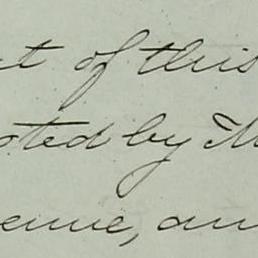 t of this
oted by M
enue, an